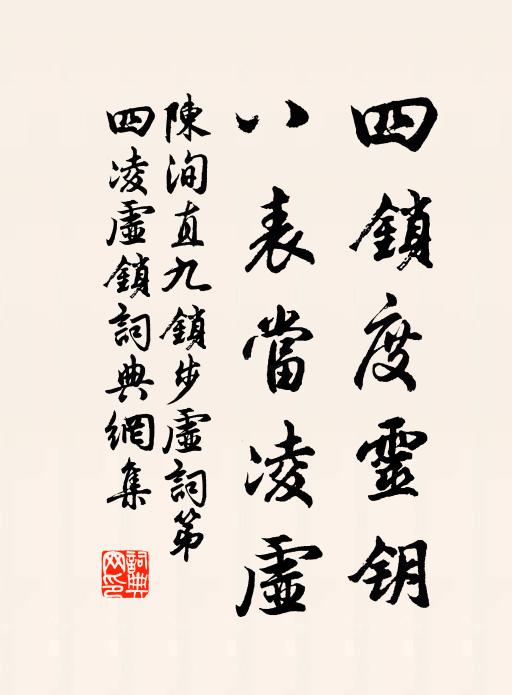 四鎖度靈钥
八表當凌虛
陳洵直九鎖步虛詞第
四凌虛鎖詞典網集
詞典网印